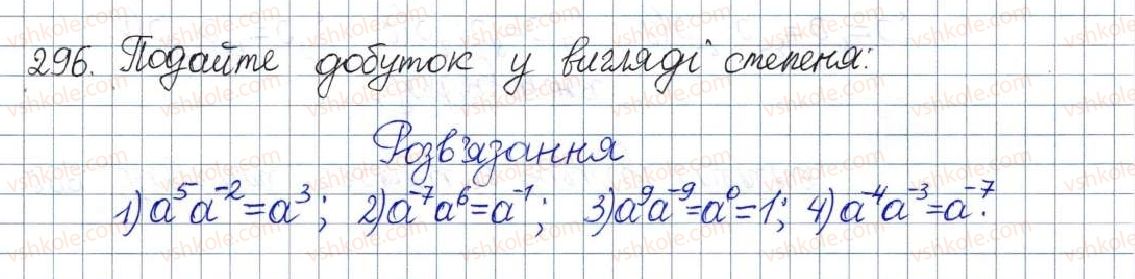 296. Подайте добуток у вигляді степеня:
Розв'язання
1) a⁵a⁻²=a³; 2) a⁻⁷a⁶=a⁻¹; 3) a⁹a⁻⁹=a⁰=1; 4) a⁻⁴a⁻³=a⁻⁷.